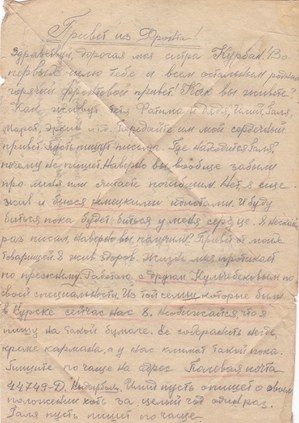 Привет из Фронта!
Здравствуй дорогая моя сестра Курбан! Во
первых шлю тебе и всем остальным
горячий фронтовой привет! Как вы живёте?
Как живут тётя Фатыма и дядя,
Марат, и т.д. Передайте им мой сердечный
привет пусть пишут письма. Где находится Галя,
почему не пишет. Наверно вы вообще забыли
про меня или считаете погибшим. Нет я ещё
жив и бьюсь с немецкими. И буду
биться пока будет биться у меня сердце. Я
раз писал, наверно вы получили? Привет от моих
товарищей. Я жив здоров. Жизнь моя протекает
по прежнему. Работаю с другом
своей специальности. Из той семьи которые были
в Курске сейчас нас 8. что я
пишу на такой бумаге. Все содержится
кроме кармана, а у нас климат такой пока.
Пишите по чаще на адрес Полевая почта
44749-Д. пусть опишет о своём
положении хоть за целый год один раз.
Галя пусть пишет по чаще.